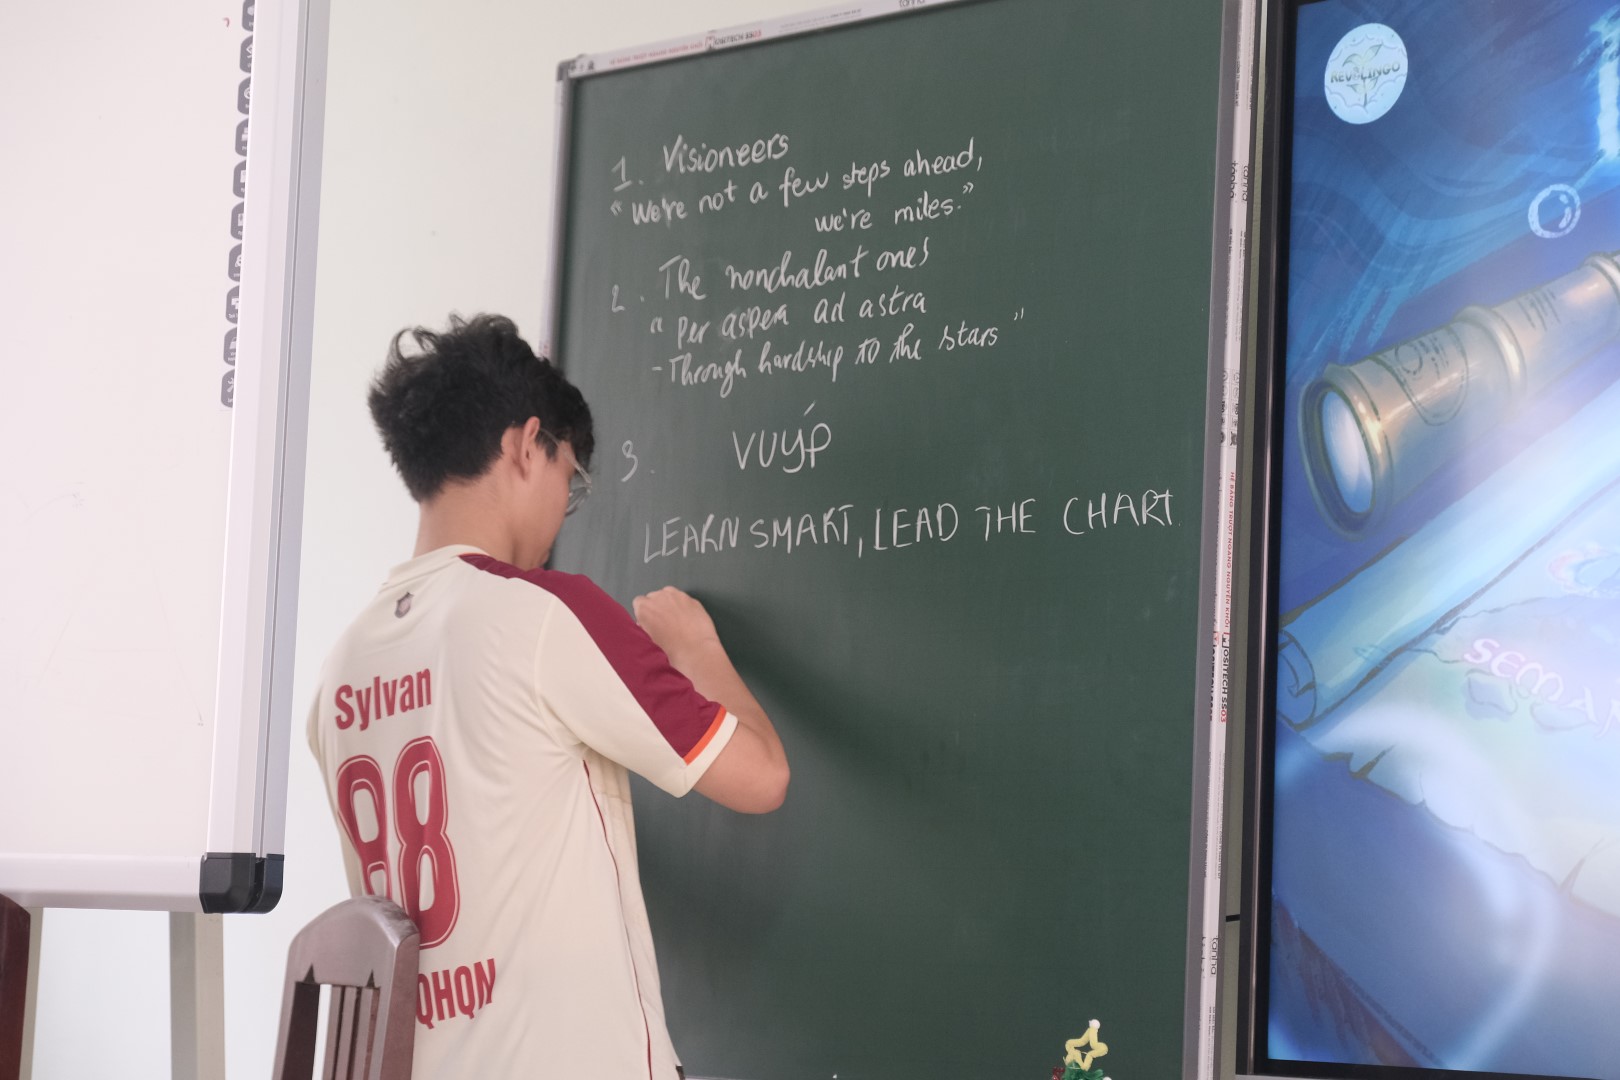 1. Visioneers
“We're not a few steps ahead,
we're miles.”
2. The nonchalant ones
“Per aspera ad astra
- Through hardship to the stars”
3. VUÝP
LEARN SMART, LEAD THE CHART
Sylvan
98
QHQN
REVALINGO
JOSITECH SS03
tanha